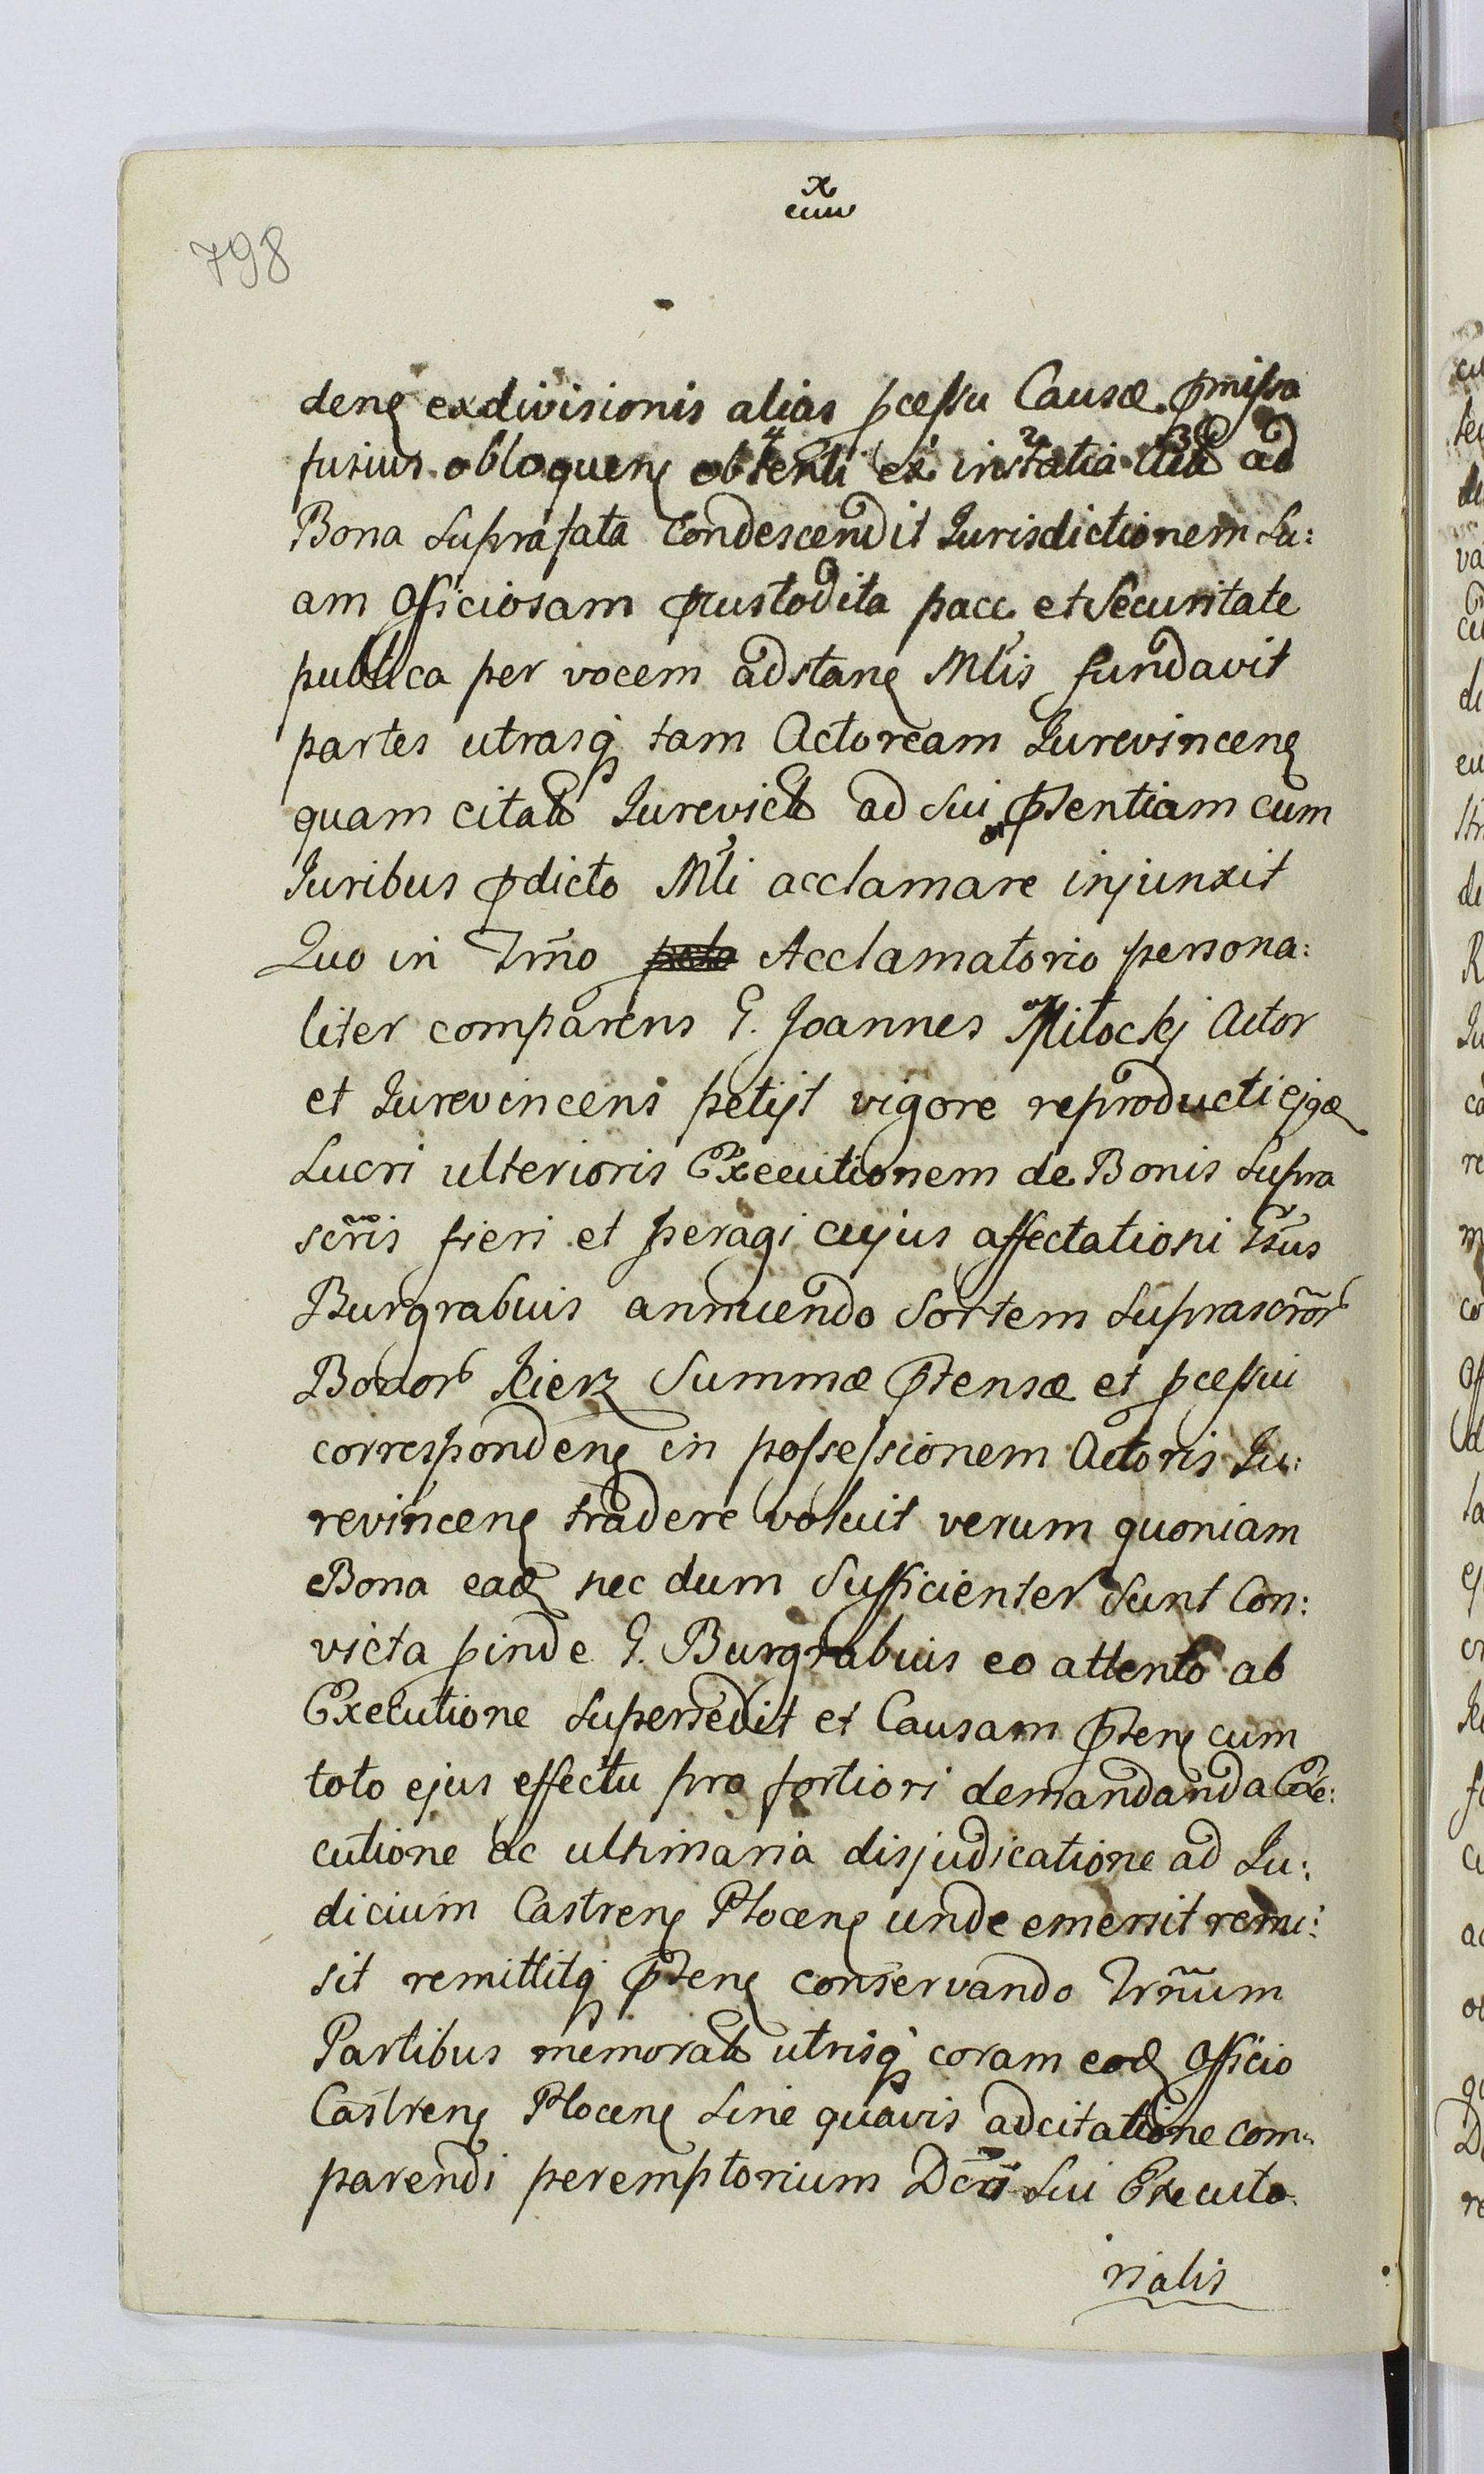 x
cum
798
denę exdivisionis alias pcessu Causæ pmissa
fusius obloquenę obtenti ex instatia ad
Bona Suprafata Condescendit Jurisdictionem Su:
am Officiosam pcustodita pace et Securitate
publica per vocem adstanę Mlis fundavit
partes utrasq tam Actoream Jurevincenę
quam citatt Jurevictt ad Sui pntentiam cum
Juribus pdicto Mli acclamare injunxit
Quo in Trmo Acclamatorio persona:
liter comparens G. Joannes Milockj Actor
et Jurevincens petijt vigore reproducti ejqæ
Lucri ulterioris Executionem de Bonis Supra
scris fieri et peragi cujus affectationi Gsus
Burgrabuis annuendo Sortem Suprascror
Bonor Kierz Summæ ptensæ et pcessui
correspondenę in possessionem Actoris Ju:
revincenę tradere voluit verum quoniam
Bona eadę nec dum Sufficienter Sunt Con:
victa pinde G. Burgrabuis eo attento ab
Executione Supersedit et Causam pntenę cum
toto ejus effectu pro fortiori demandanda Exe:
cutione ac ultimaria disjudicatione ad Ju:
dicium Castrenę Plocenę unde emersit remi:
sit remittitq pntenę conservando Trnum
Partibus memoratt utrisq coram eodę Officio
Castrenę Plocenę Sine quavis adcitatione com:
parendi peremptorium Dcri Sui Executo
rialis